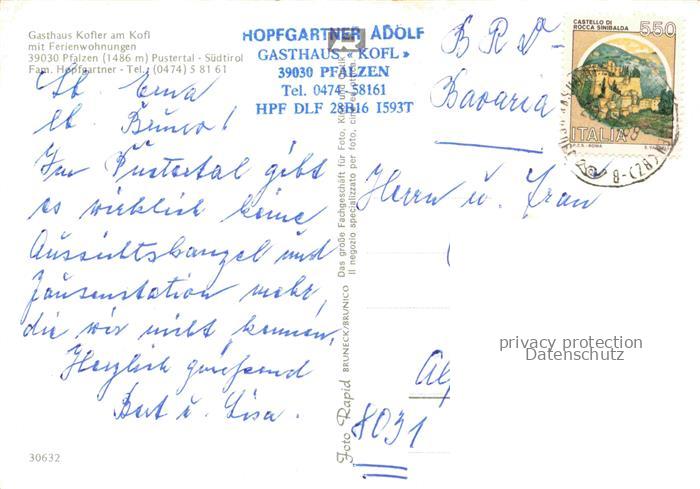 Gasthaus Kofler am Kofl
mit Ferienwohnungen
39030 Pfalzen (1486 m) Pustertal - Südtirol
Fam. Hopfgartner - Tel. (0474) 5 81 61
HOPFGARTNER ADOLF
GASTHAUS «KOFL»
39030 PFALZEN
Tel. 0474 58161
HPF DLF 28H16 I593T
Lb. Erna
lb. Bruno!
Im Pustertal gibt
es wirklich keine
Aussichtskanzel und
Jausenstation mehr,
die wir nicht kennen.
Herzlich grüßend
Bert u. Lisa.
30632
Foto Rapid BRUNECK/BRUNICO
Das große Fachgeschäft für Foto, Kino und Optik
Il negozio specializzato per foto, cine ed ottica
B R D -
Bavaria
Herrn u. Frau
8031
CASTELLO DI
ROCCA SINIBALDA
550
ITALIA
I.P.Z.S. - ROMA
privacy protection
Datenschutz